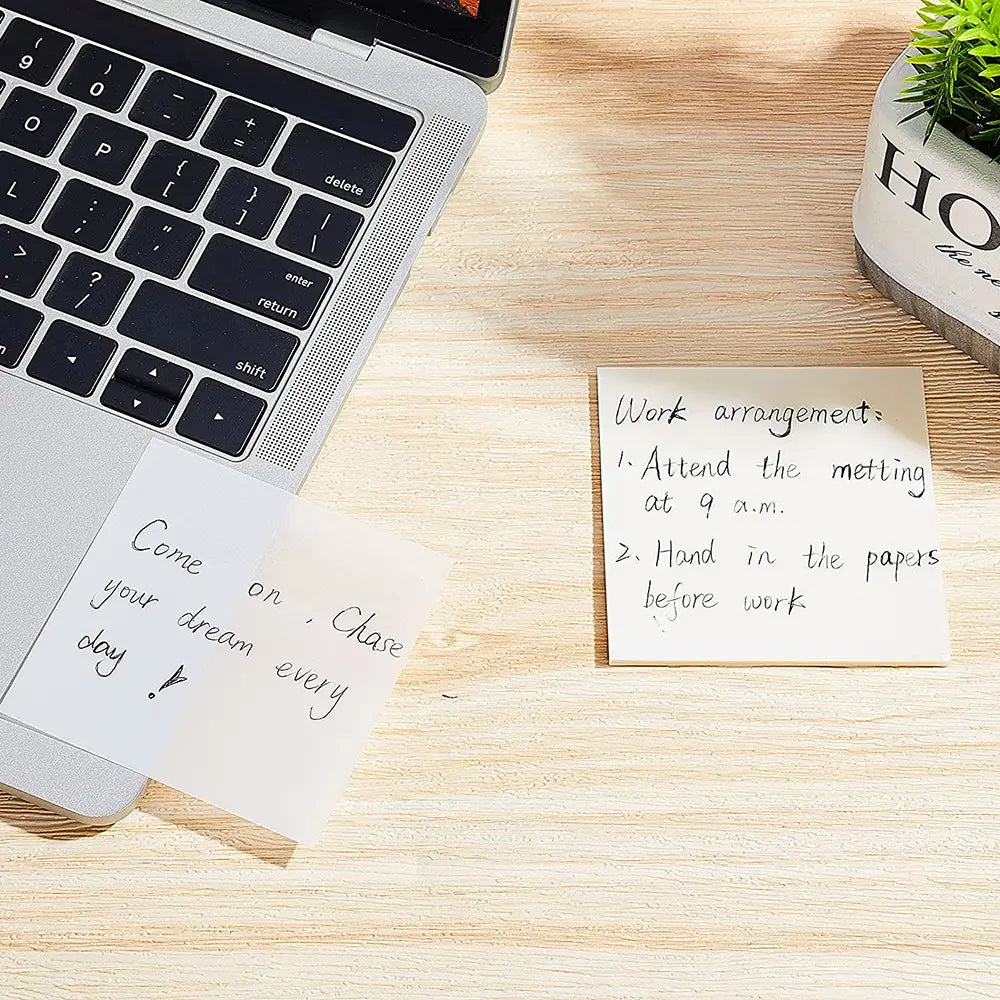 ( 9
) 0
_ -
+ =
delete
O
P
{ [
} ]
| \
L
: ;
" '
enter
return
>
? /
shift
Come on, Chase
your dream every
day !
Work arrangement:
1. Attend the metting
at 9 a.m.
2. Hand in the papers
before work
HO
the ne